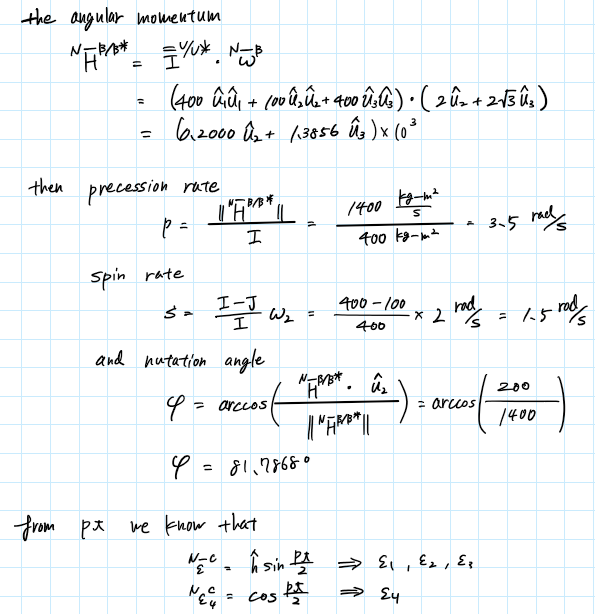 the angular momentum
ᴺH̄ᴮ/ᴮ* = I̿ᵁ/ᵁ* · ᴺω̄ᴮ
= (400 û₁û₁ + 100 û₂û₂ + 400 û₃û₃) · (2 û₂ + 2√3 û₃)
= (0.2000 û₂ + 1.3856 û₃) × 10³
then precession rate
p = ‖ᴺH̄ᴮ/ᴮ*‖ / I = 1400 kg-m²/s / 400 kg-m² = 3.5 rad/s
spin rate
s = (I-J)/I ω₂ = (400-100)/400 × 2 rad/s = 1.5 rad/s
and nutation angle
φ = arccos(ᴺH̄ᴮ/ᴮ* · û₂ / ‖ᴺH̄ᴮ/ᴮ*‖) = arccos(200/1400)
φ = 81.7868°
from pt we know that
ᴺε̄ᶜ = ĥ sin pt/2 ⇒ ε₁, ε₂, ε₃
ᴺε₄ᶜ = cos pt/2 ⇒ ε₄